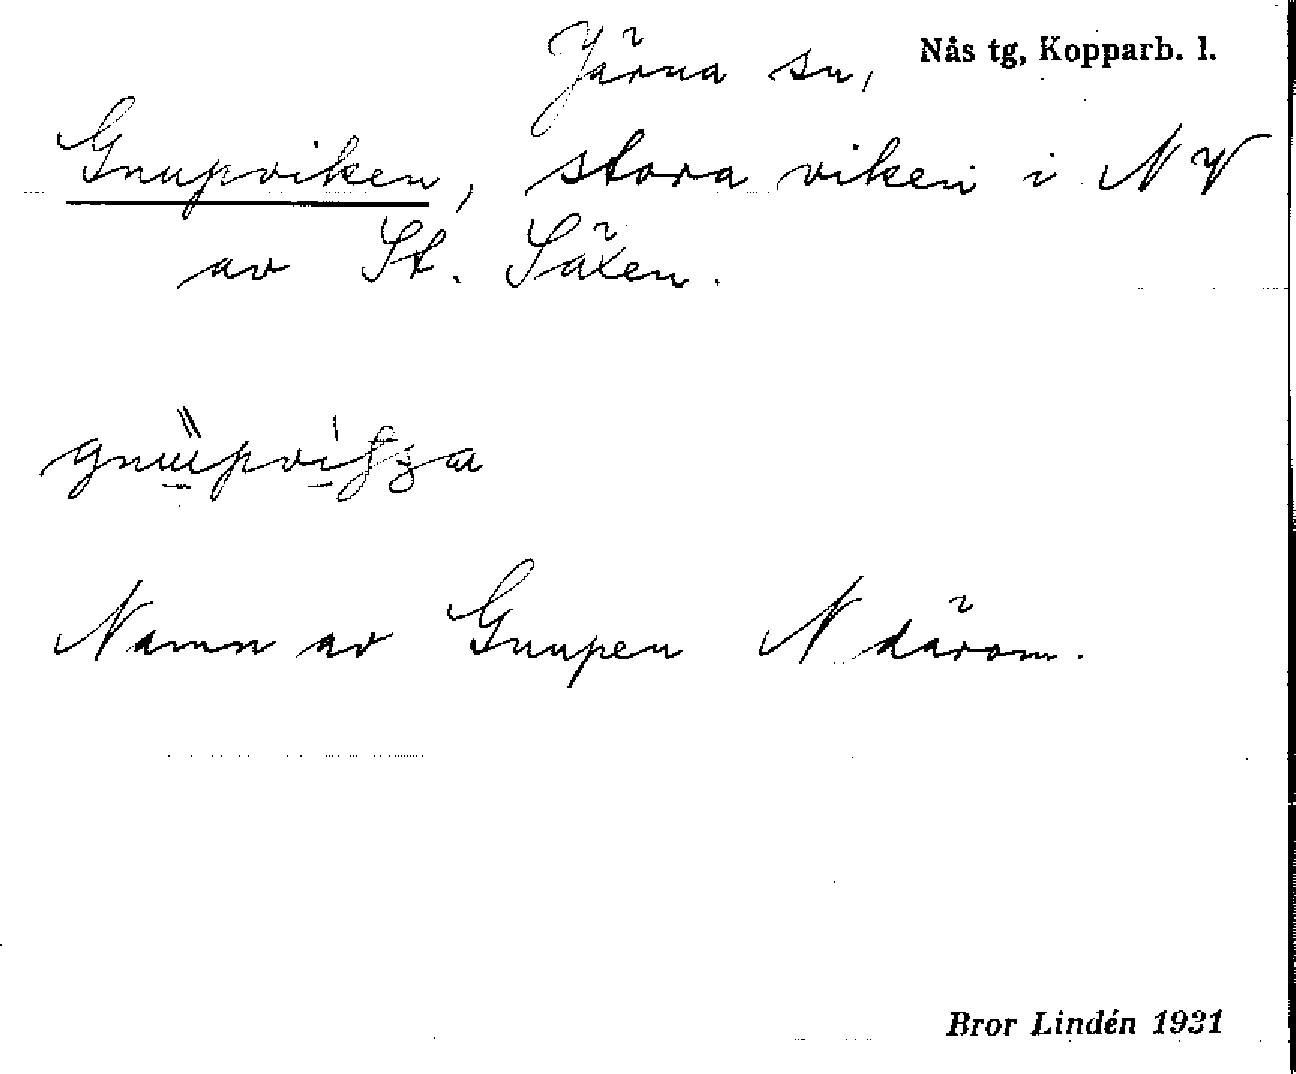 Järna sn, Nås tg, Kopparb. l.
Gnupviken, stora viken i NV
av St. Säxen.
Namn av Gnupen N därom.
Bror Lindén 1931